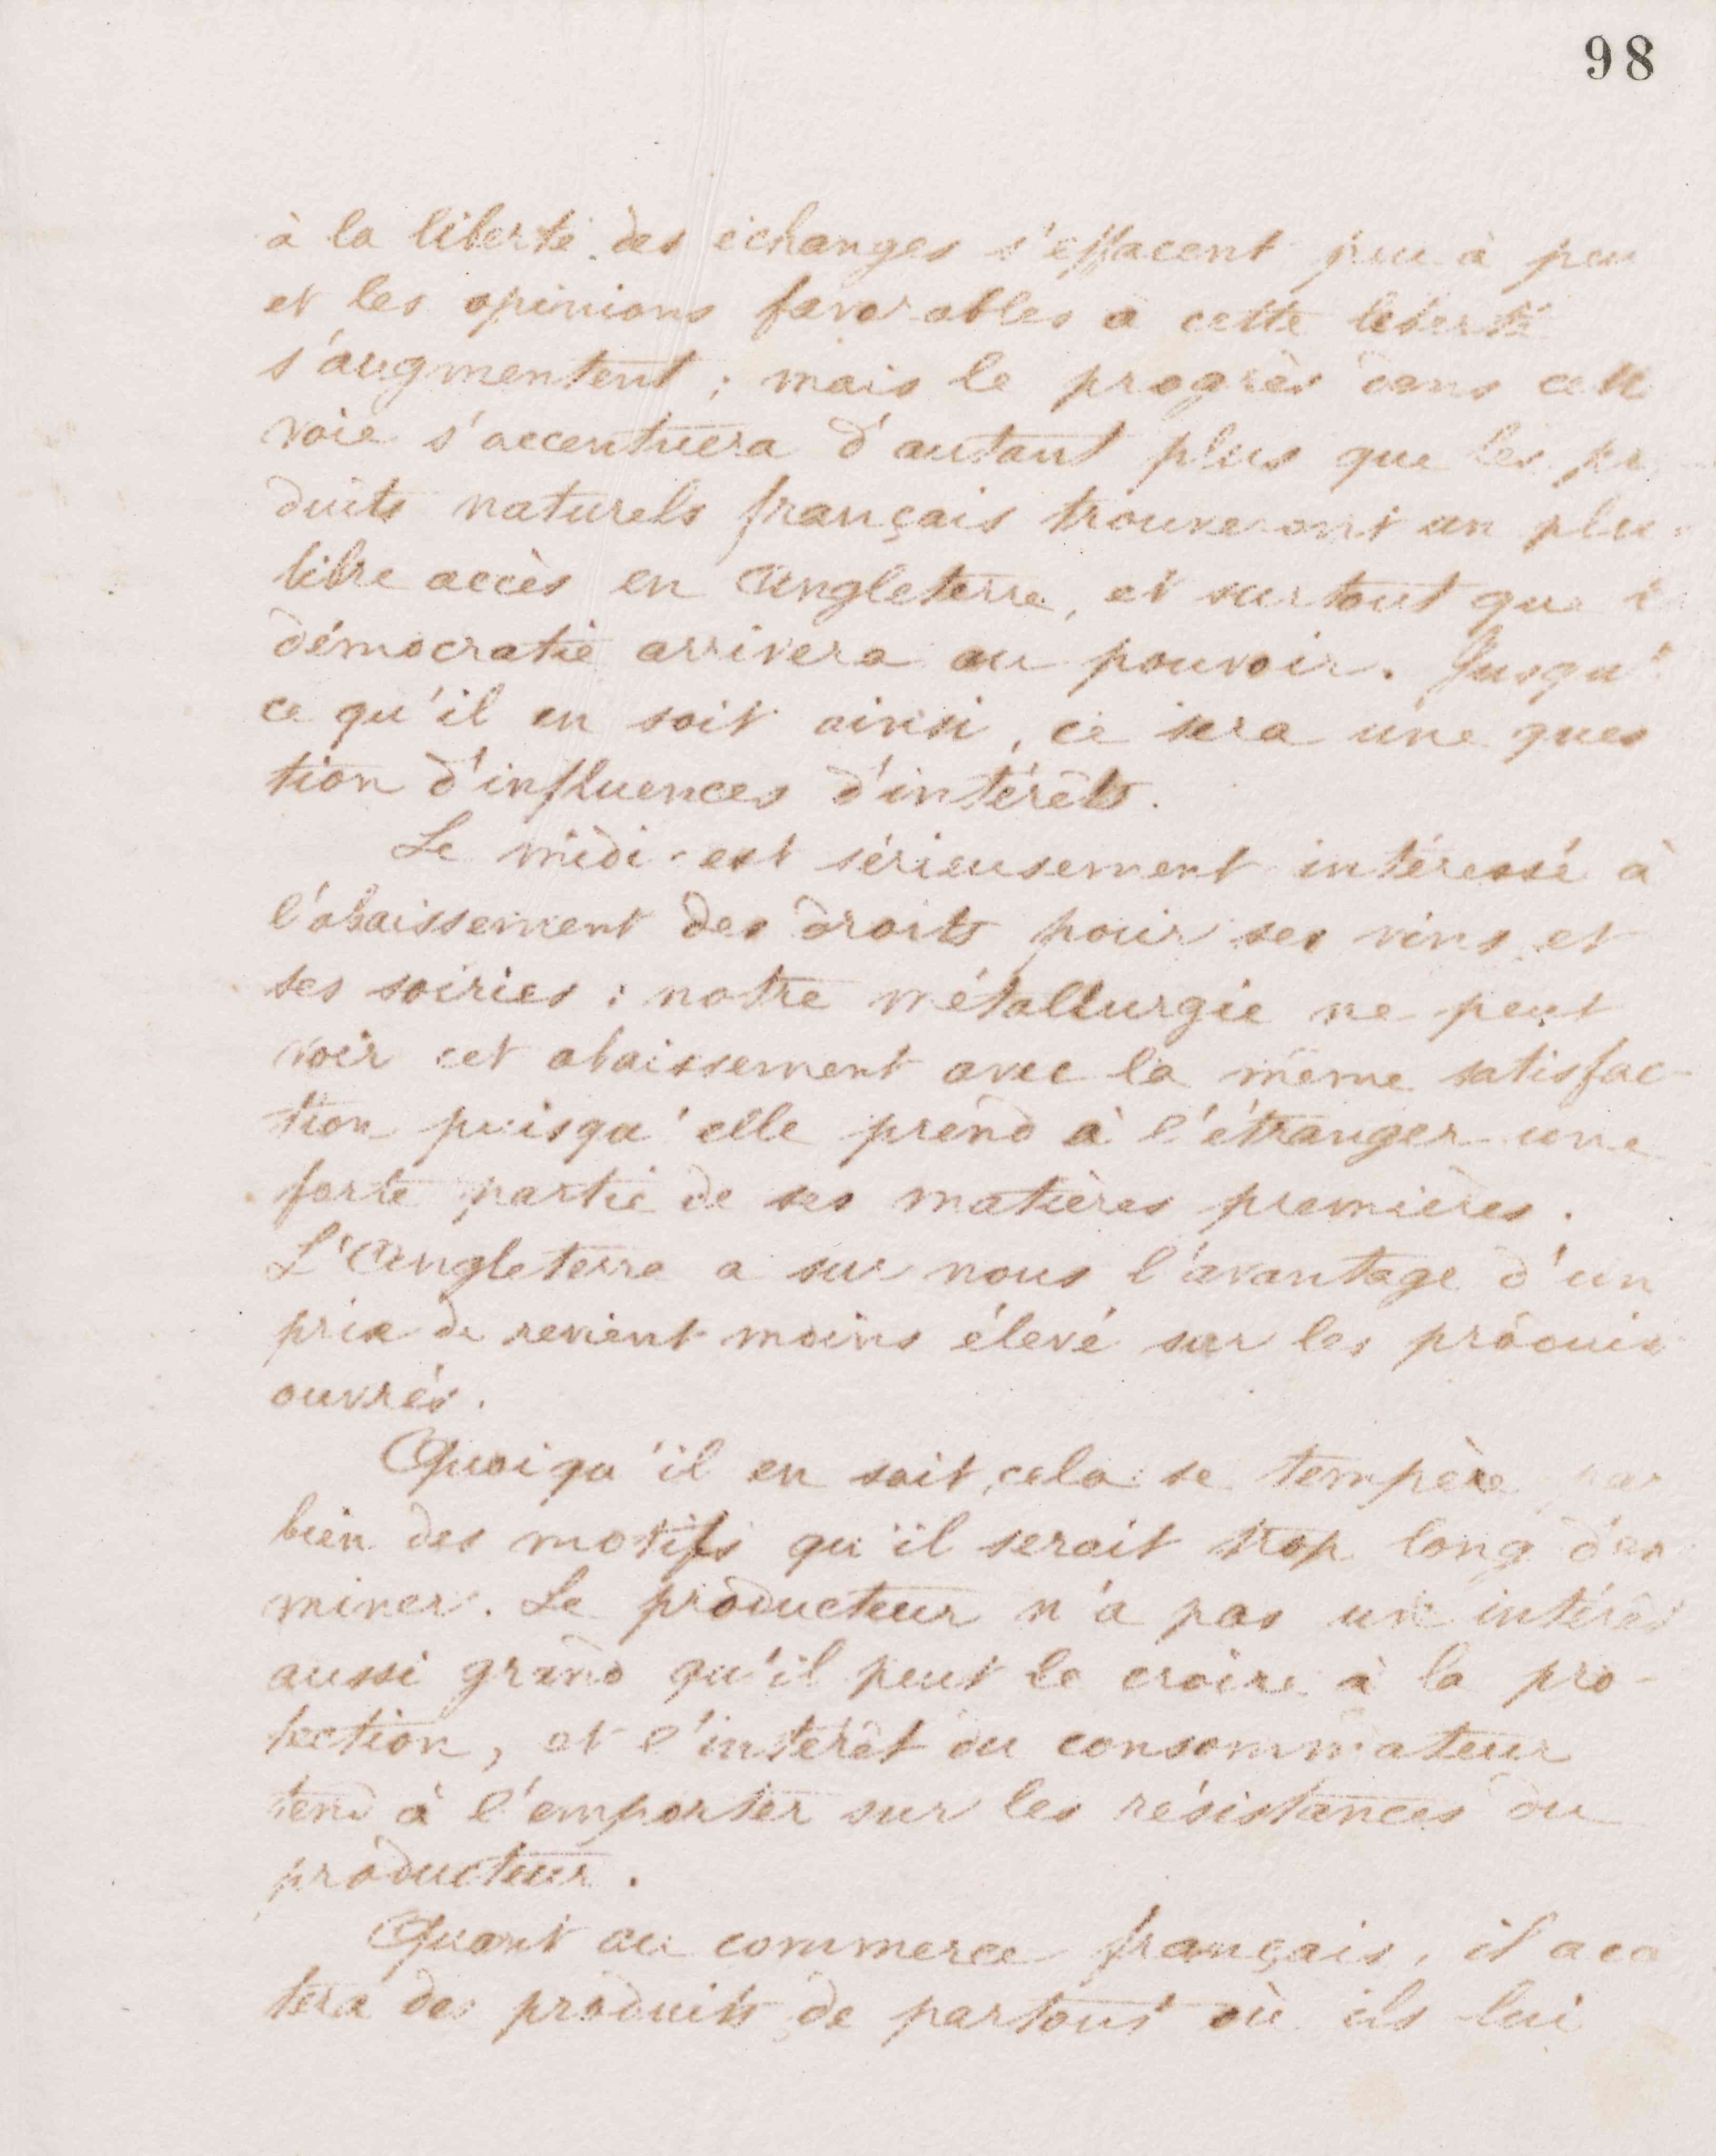 98
à la liberté des échanges s'effacent peu à peu
et les opinions favorables à cette liberté
s'augmentent ; mais le progrès dans cette
voie s'accentuera d'autant plus que les pr
duits naturels français trouveront un plus
libre accès en Angleterre, et surtout que
démocratie arrivera au pouvoir. Jusqu'
ce qu'il en soit ainsi, ce sera une ques
tion d'influences d'intérêts.
Le midi est sérieusement intéressé à
l'abaissement des droits pour ses vins et
ses soiries : notre métallurgie ne peut
voir cet abaissement avec la même satisfac-
tion puisqu'elle prend à l'étranger une
forte partie de ses matières premières.
L'Angleterre a sur nous l'avantage d'un
prix de revient moins élevé sur les produis
ouvrés.
Quoiqu'il en soit, cela se tempère par
bien des motifs qu'il serait trop long
miner. Le producteur n'a pas un intérêt
aussi grand qu'il peut le croire à la pro-
tection, et l'intérêt du consommateur
tend à l'emporter sur les résistances du
producteur.
Quant au commerce français, il
tera des produits de partout où ils lui